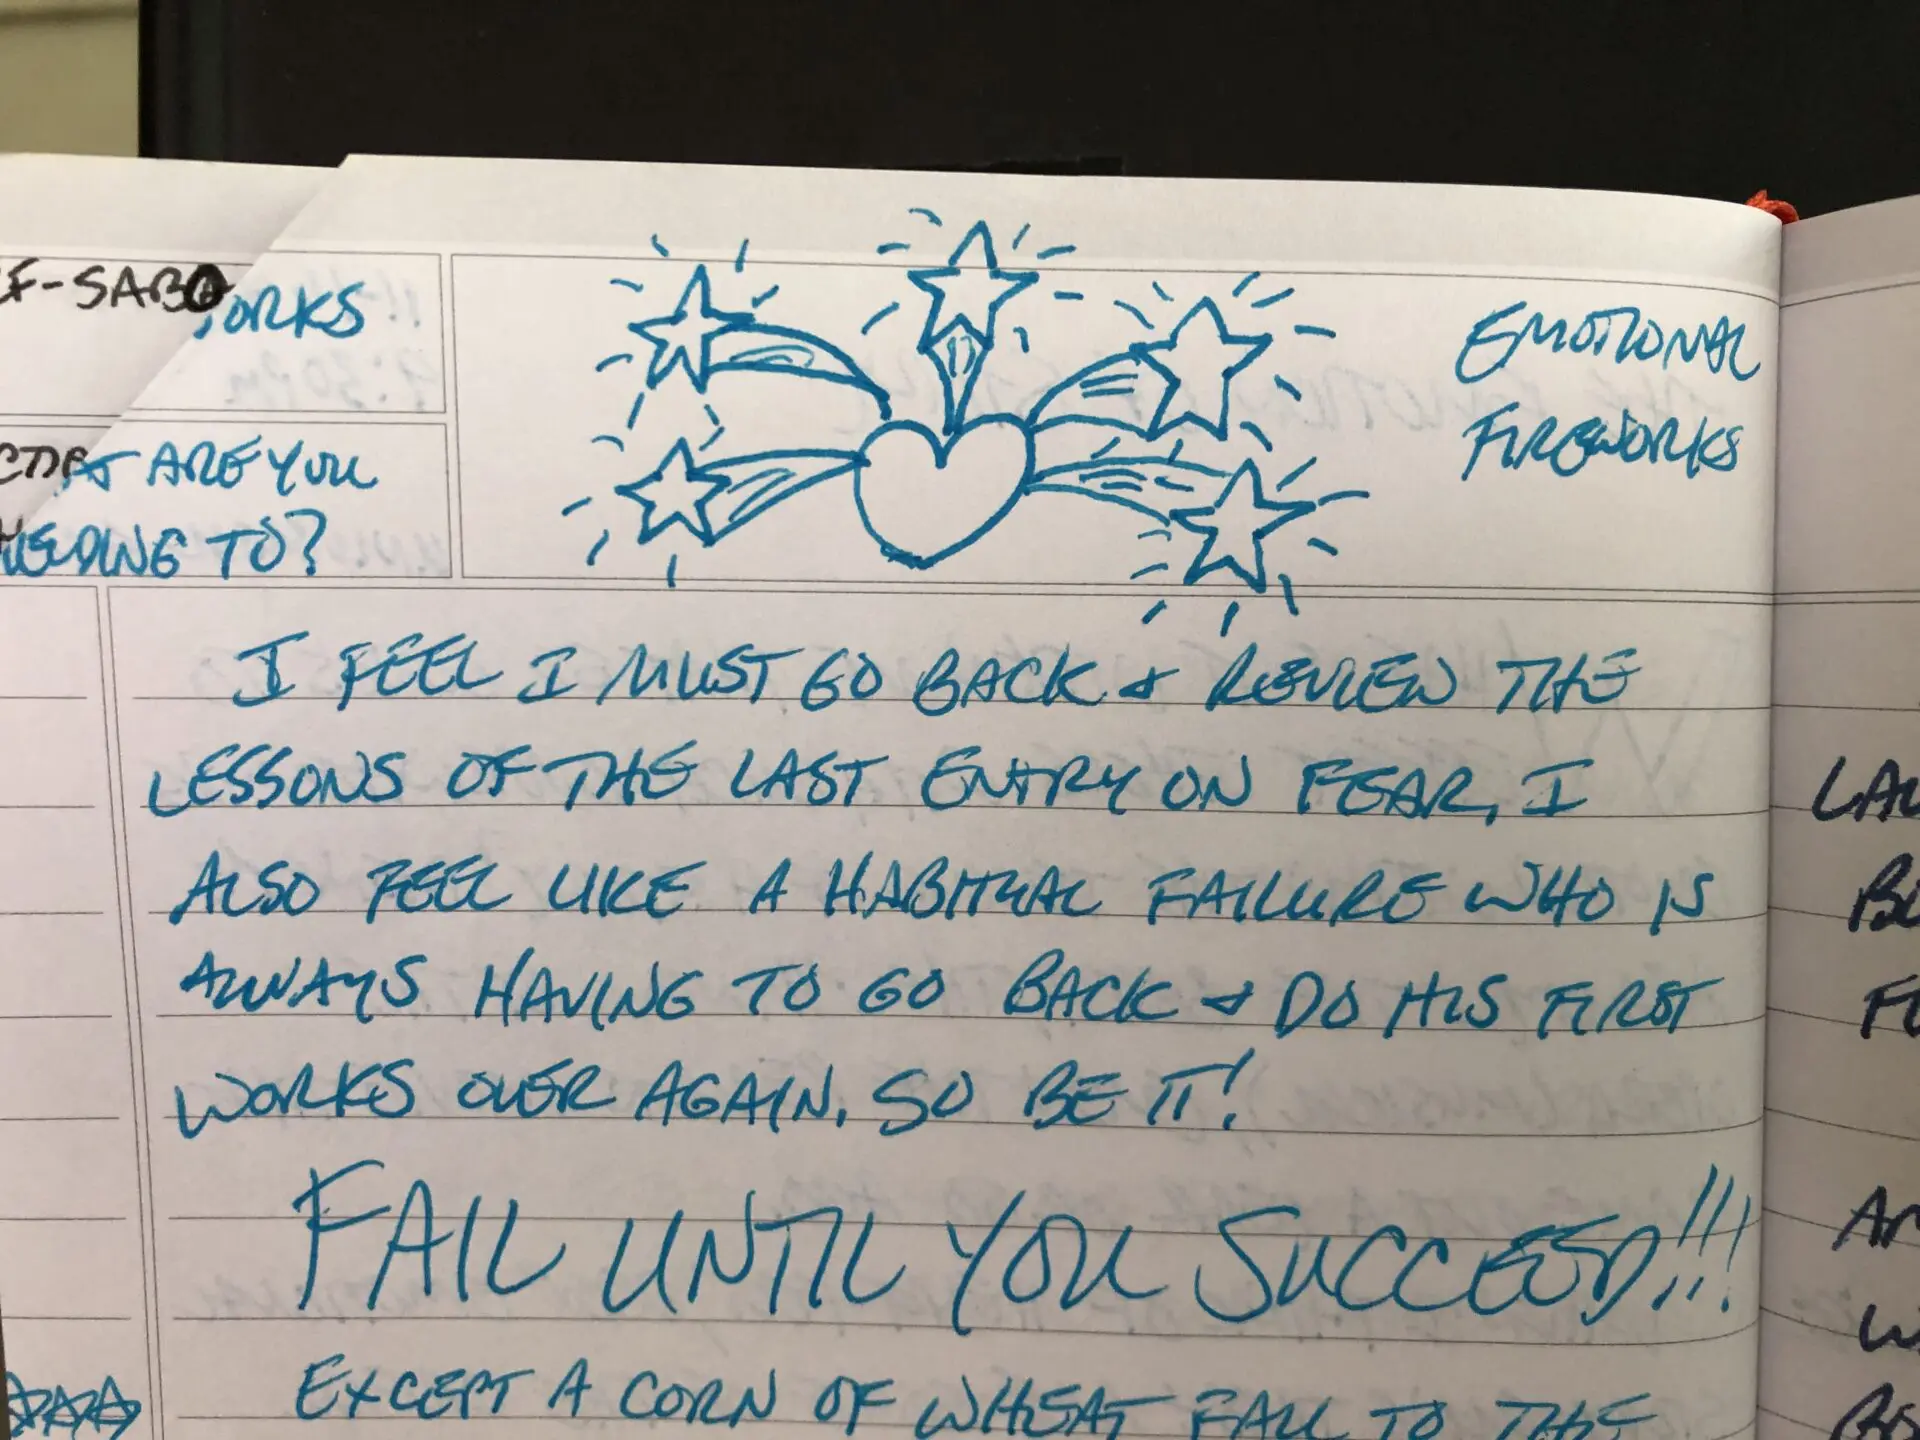 EMOTIONAL
FIREWORKS
ARE YOU
TO?
I FEEL I MUST GO BACK & REVIEW THE
LESSONS OF THE LAST ENTRY ON FEAR, I
ALSO FEEL LIKE A HABITUAL FAILURE WHO IS
ALWAYS HAVING TO GO BACK & DO HIS FIRST
WORKS OVER AGAIN. SO BE IT!
FAIL UNTIL YOU SUCCEED!!!
EXCEPT A CORN OF WHEAT FALL TO THE